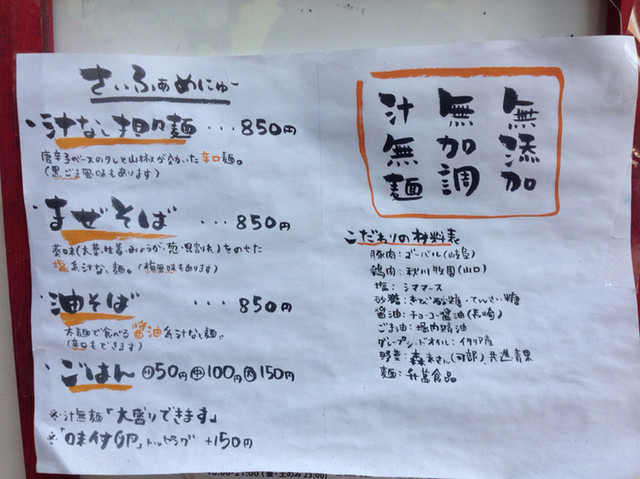 さいふぁめにゅー
・汁なし担々麺 ・・・850円
唐辛子ベースのタレと山椒が効いた辛口麺。
(黒ごま風味もあります)
・まぜそば ・・・850円
香味(大葉・生姜・みょうが・葱・貝割れ)をのせた
塩系汁なし麺。(梅風味もあります)
・油そば ・・・850円
太麺で食べる醤油系汁なし麺。
(辛口もできます)
・ごはん 小50円 中100円 大150円
※汁無麺「大盛りできます」
※「味付卵」トッピング +150円
無添加
無加調
汁無麺
こだわりの材料表
豚肉:ゴーバル(岐阜)
鶏肉:秋川牧園(山口)
塩:シママース
砂糖:きび砂糖・てんさい糖
醤油:チョーコー醤油(長崎)
ごま油:堀内製油
グレープシードオイル:イタリア産
野菜:森本さん(可部)、共進青果
麺:升萬食品
18:00-21:00(金・土のみ 23:00)